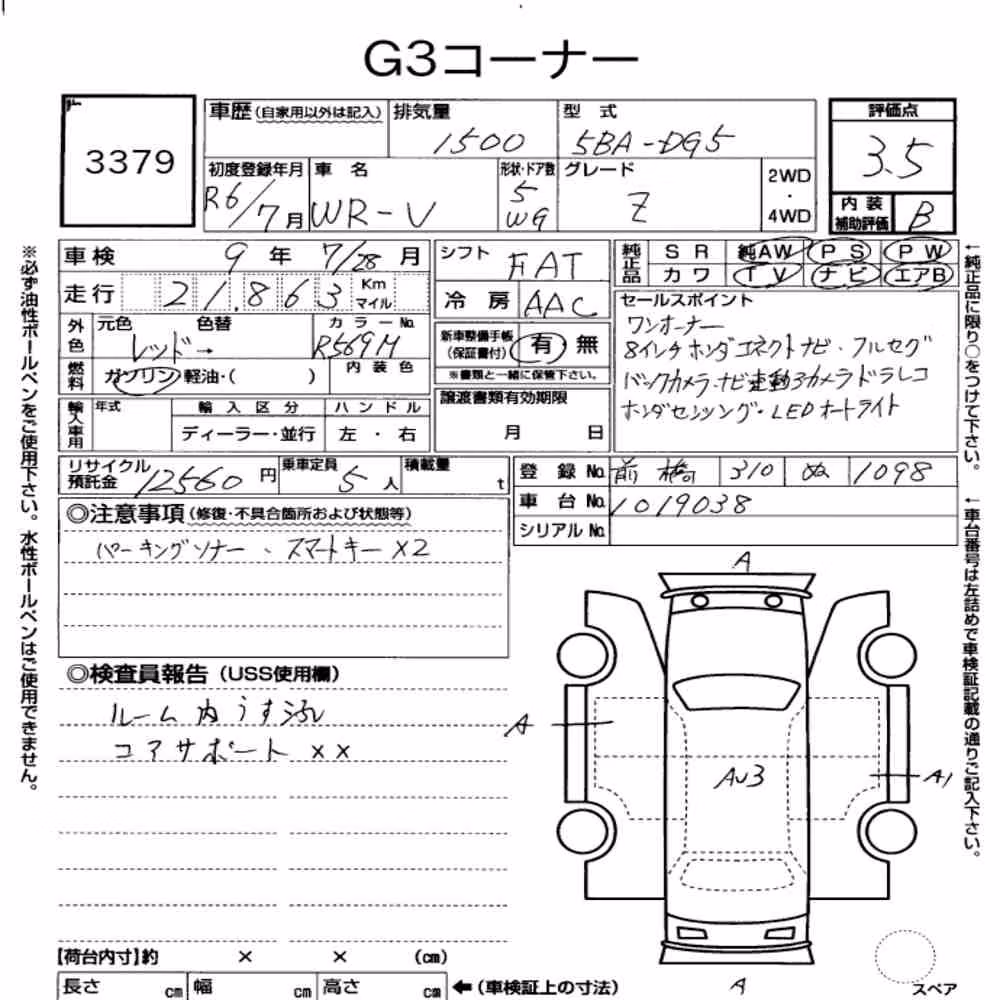 G3コーナー
3379
車歴(自家用以外は記入) 排気量 型 式
1500 5BA-DG5
初度登録年月 車 名 形状・ドア数 グレード
R6/7月 WR-V 5 WG Z 2WD・4WD
評価点
3.5
内 装
補助評価 B
車検 9年 7/28月
走行 21.863 Km マイル
外色 元色 色替 カラーNo.
レッド→ R569M
燃料 ガソリン 軽油・( ) 内 装 色
輸入車用 年式 輸 入 区 分 ハ ン ド ル
ディーラー・並行 左 ・ 右
シフト FAT
冷 房 AAC
新車整備手帳
(保証書付) 有・無
※書類と一緒に保管下さい。
譲渡書類有効期限
月 日
純正品 S R 純AW P S P W
カ ワ T V ナビ エアB
セールスポイント
ワンオーナー
8インチホンダコネクトナビ・フルセグ
バックカメラ・ナビ連動3カメラドラレコ
ホンダセンシング・LEDオートライト
リサイクル
預託金 12560 円 乗車定員 5 人 積載量 t
登 録 No. 前橋 310 ぬ 1098
車 台 No. 1019038
シリアル No.
◎注意事項(修復・不具合箇所および状態等)
パーキングソナー、スマートキーX2
◎検査員報告(USS使用欄)
ルーム内うす汚レ
コアサポート××
A
A
AU3
A1
A
【荷台内寸】約 × × (cm)
長さ cm 幅 cm 高さ cm ←(車検証上の寸法)
スペア
※必ず油性ボールペンをご使用下さい。水性ボールペンはご使用できません。
←純正品に限り○をつけて下さい。
←車台番号は左詰めで車検証記載の通りご記入下さい。